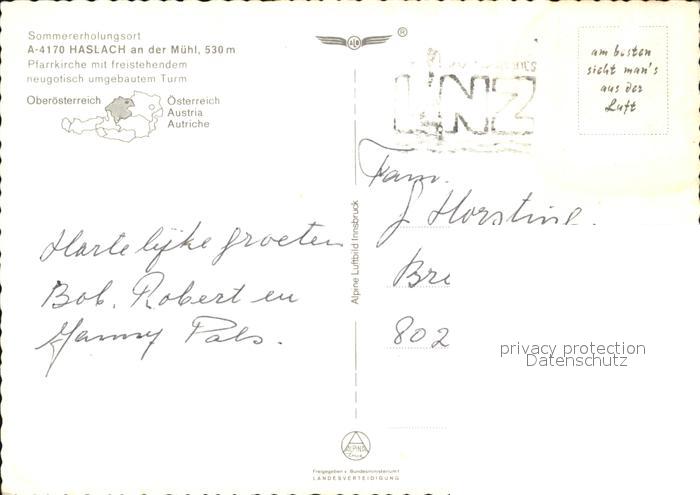 Sommererholungsort
A-4170 HASLACH an der Mühl, 530 m
Pfarrkirche mit freistehendem
neugotisch umgebautem Turm
Oberösterreich
Österreich
Austria
Autriche
Hartelijke groeten
Bob, Robert en
Hanny Pals.
Alpine Luftbild Innsbruck
®
LINZ
am besten
sieht man's
aus der
Luft
Fam.
J Horstink.
Bre
802
privacy protection
Datenschutz
ALPINE
Freigegeben v. Bundesministerium f.
LANDESVERTEIDIGUNG